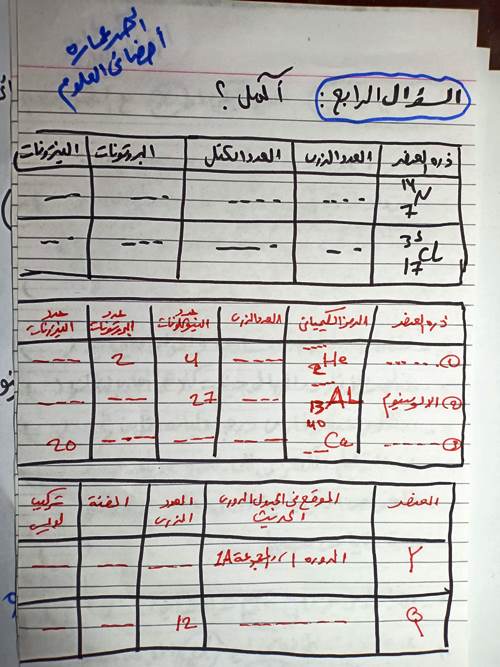 احمد عماره
أخصائي العلوم
السؤال الرابع : أكمل ؟
ذره العنصر العدد الذري العدد الكتلي البروتونات النيترونات
14 N 7 ---- ---- --- ---
35 CL 17 --- ---- --- ---
ذره العنصر الرمز الكيميائي العدد الذري عدد النيوكلونات عدد البروتونات عدد النيترونات
① ------ --- He 2 ---- 4 2 ---
② الالومنيوم --- AL 13 ---- 27 --- ---
③ ------ 40 Ca --- ---- --- --- 20
العنصر الموقع في الجدول الدوري الحديث العدد الذري الفئة تركيب لويس
الدوره / المجموعة 1A --- --- ---
------ 12 --- ---